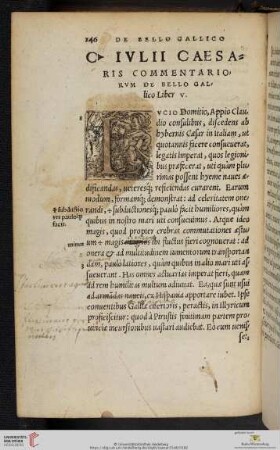 246 DE BELLO GALLICO
C. IVLII CAESA-
RIS COMMENTARIO-
RVM DE BELLO GAL-
lico Liber V.
LVCIO Domitio, Appio Clau-
dio consulibus, discedens ab
hybernis Cæsar in Italiam, ut
quotannis facere consueuerat,
legatis imperat, quos legioni-
bus præfecerat, uti quàm pluri-
rimas possent hyeme naueis æ-
dificandas, ueteresq; reficiendas curarent. Earum
modum, formamq; demonstrat: ad celeritatem one-
randi, + subductionesq; paulò facit humiliores, quàm
quibus in nostro mari uti consueuimus. Atque ideo
magis, quod propter crebras commutationes æstu
um + magis ibi fluctus fieri cognouerat: ad
onera & ad multitudinem iumentorum transportan
dam, paulò latiores, quàm quibus in alio mari uti as
sueuerant. Has omnes actuarias imperat fieri, quam
ad rem humilitas multum adiuuat. Ea quæ sunt usui
ad armandas naueis, ex Hispania apportari iubet. Ipse
conuentibus Galliæ citerioris peractis, in Illyricum
proficiscitur: quod à Pirustis finitimam partem pro
uinciæ incursionibus uastari audiebat. Eò cum uenis
se,
+ subductio
nes pauloq;
facit
minus